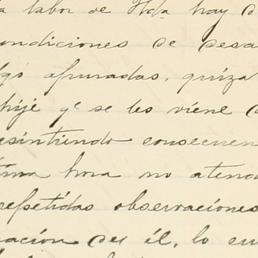 a labor de Hda hay d
ondiciones de desa
go apuradas, quiza
hije qe se les viene
esintiendo consecuen
tima hora no atend
repetidas observaciones
ación de él, lo en